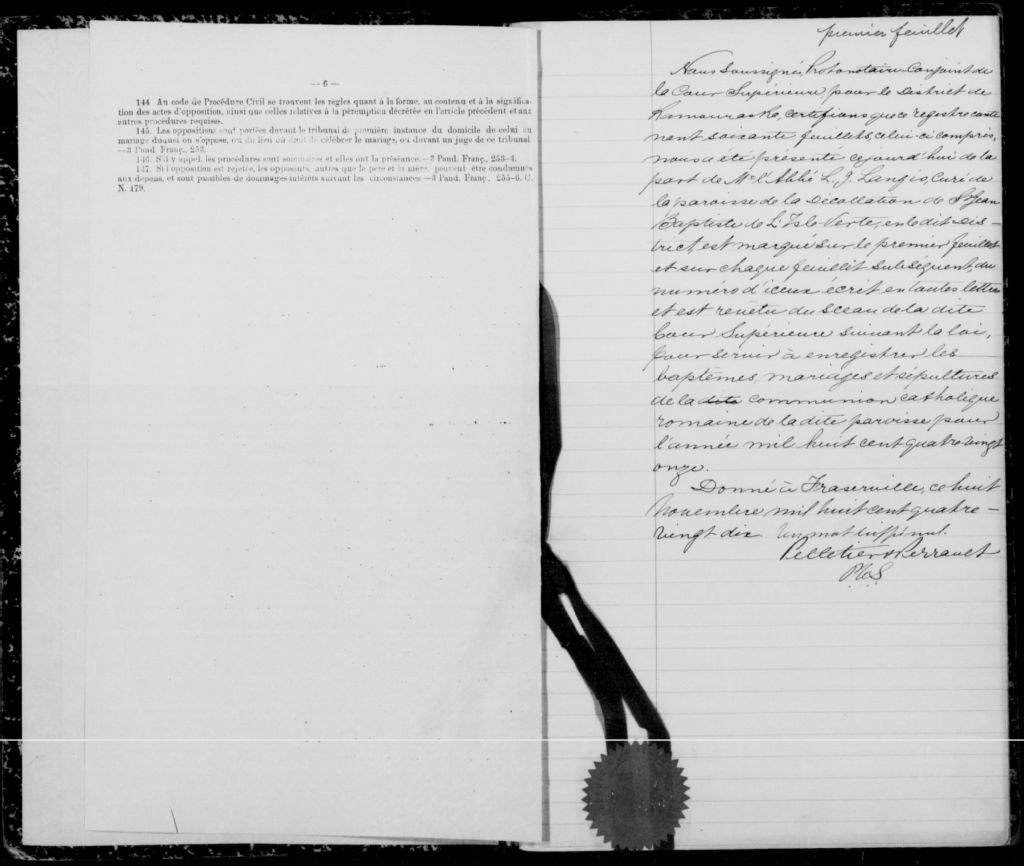 — 6 —
144 Au code de Procédure Civil se trouvent les règles quant à la forme, au contenu et à la significa-
tion des actes d'opposition, ainsi que celles relatives à la péremption décrétée en l'article précédent et aux
autres procédures requises.
145. Les oppositions sont portées devant le tribunal de première instance du domicile de celui au
mariage duquel on s'oppose, ou du lieu où doit se célébrer le mariage, ou devant un juge de ce tribunal.
—3 Pand. Franç., 253.
146. S'il y appel, les procédures sont sommaires et elles ont la préséance.—3 Pand. Franç., 253-4.
147. Si l'opposition est rejetée, les opposants, autres que le père et la mère, peuvent être condamnés
aux dépens, et sont passibles de dommages-intérêts suivant les circonstances—3 Pand. Franç., 255-6. C.
N. 179.
premier feuillet
Nous Soussignés, Protonotaire Conjoint de
la Cour Supérieure, pour le District de
Kamouraska, certifions que ce registre conte
nant soixante feuillets celui-ci compris,
nous a été présenté cejourd'hui de la
part de Mr l'Abbé L. J. Langis, Curé de
la paroisse de la Décollation de St Jean
Baptiste de L'Isle-Verte, en le dit Dis-
trict, est marqué sur le premier feuillet
et sur chaque feuillet subséquent, du
numéro d'iceux écrit en toutes lettres
et est revêtu du sceau de la dite
Cour Supérieure suivant la loi,
pour servir à enregistrer les
baptêmes, mariages et sépultures
de la dite communion catholique
romaine de la dite paroisse pour
l'année mil huit cent quatre vingt
onze.
Donné à Fraserville, ce huit
Novembre mil huit cent quatre-
vingt dix. Un mot biffé nul.
Pelletier & Perrault
P.C.S.